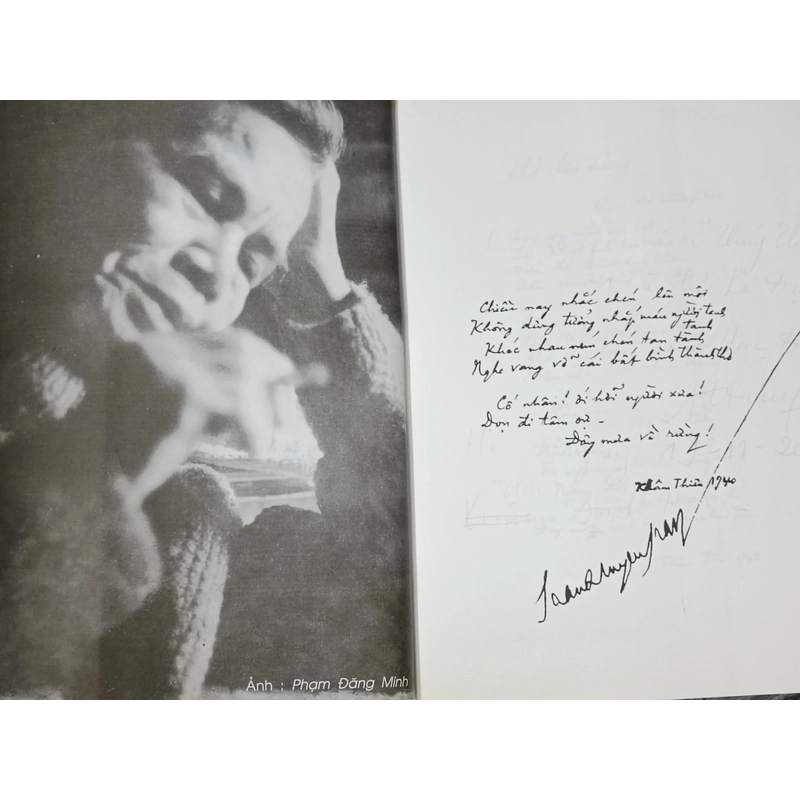 Ảnh : Phạm Đăng Minh
Chiều nay nhắc chén lên môi
Không dừng tưởng nhấp máu người tanh
tanh
Khóc nhau ném chén tan tành
Nghe vang vỡ cái bất bình thành thơ
Cố nhân! ới hỡi người xưa!
Dọn đi tâm sự -
Đây mưa về rừng!
Khâm Thiên 1940